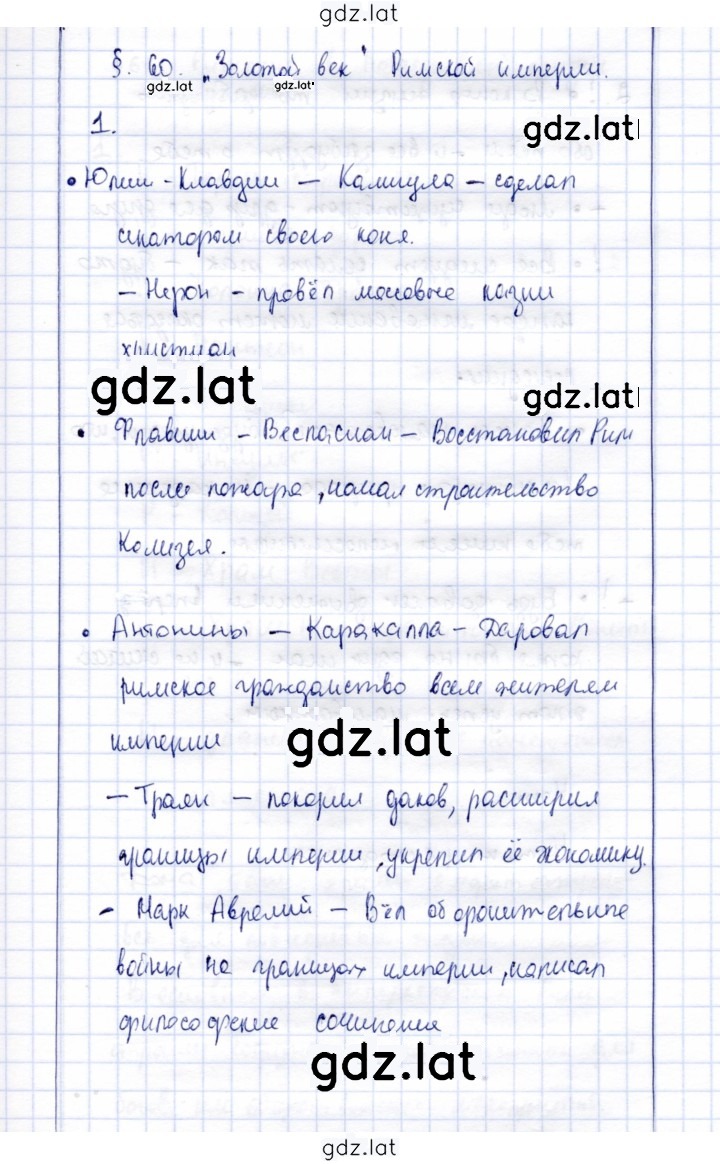 gdz.lat
§. 60. „Золотой век" Римской империи.
gdz.lat gdz.lat
1.
gdz.lat
• Юлии - Клавдии – Калигула – сделал
сенатором своего коня.
– Нерон – провёл массовые казни
христиан
gdz.lat
gdz.lat
• Флавии – Веспасиан – Восстановил Рим
после пожара, начал строительство
Колизея.
• Антонины – Каракалла – Даровал
римское гражданство всем жителям
империи
gdz.lat
– Траян – покорил даков, расширил
границы империи, укрепил её экономику.
– Марк Аврелий – Вёл оборонительные
войны на границах империи, написал
философские сочинения
gdz.lat
gdz.lat